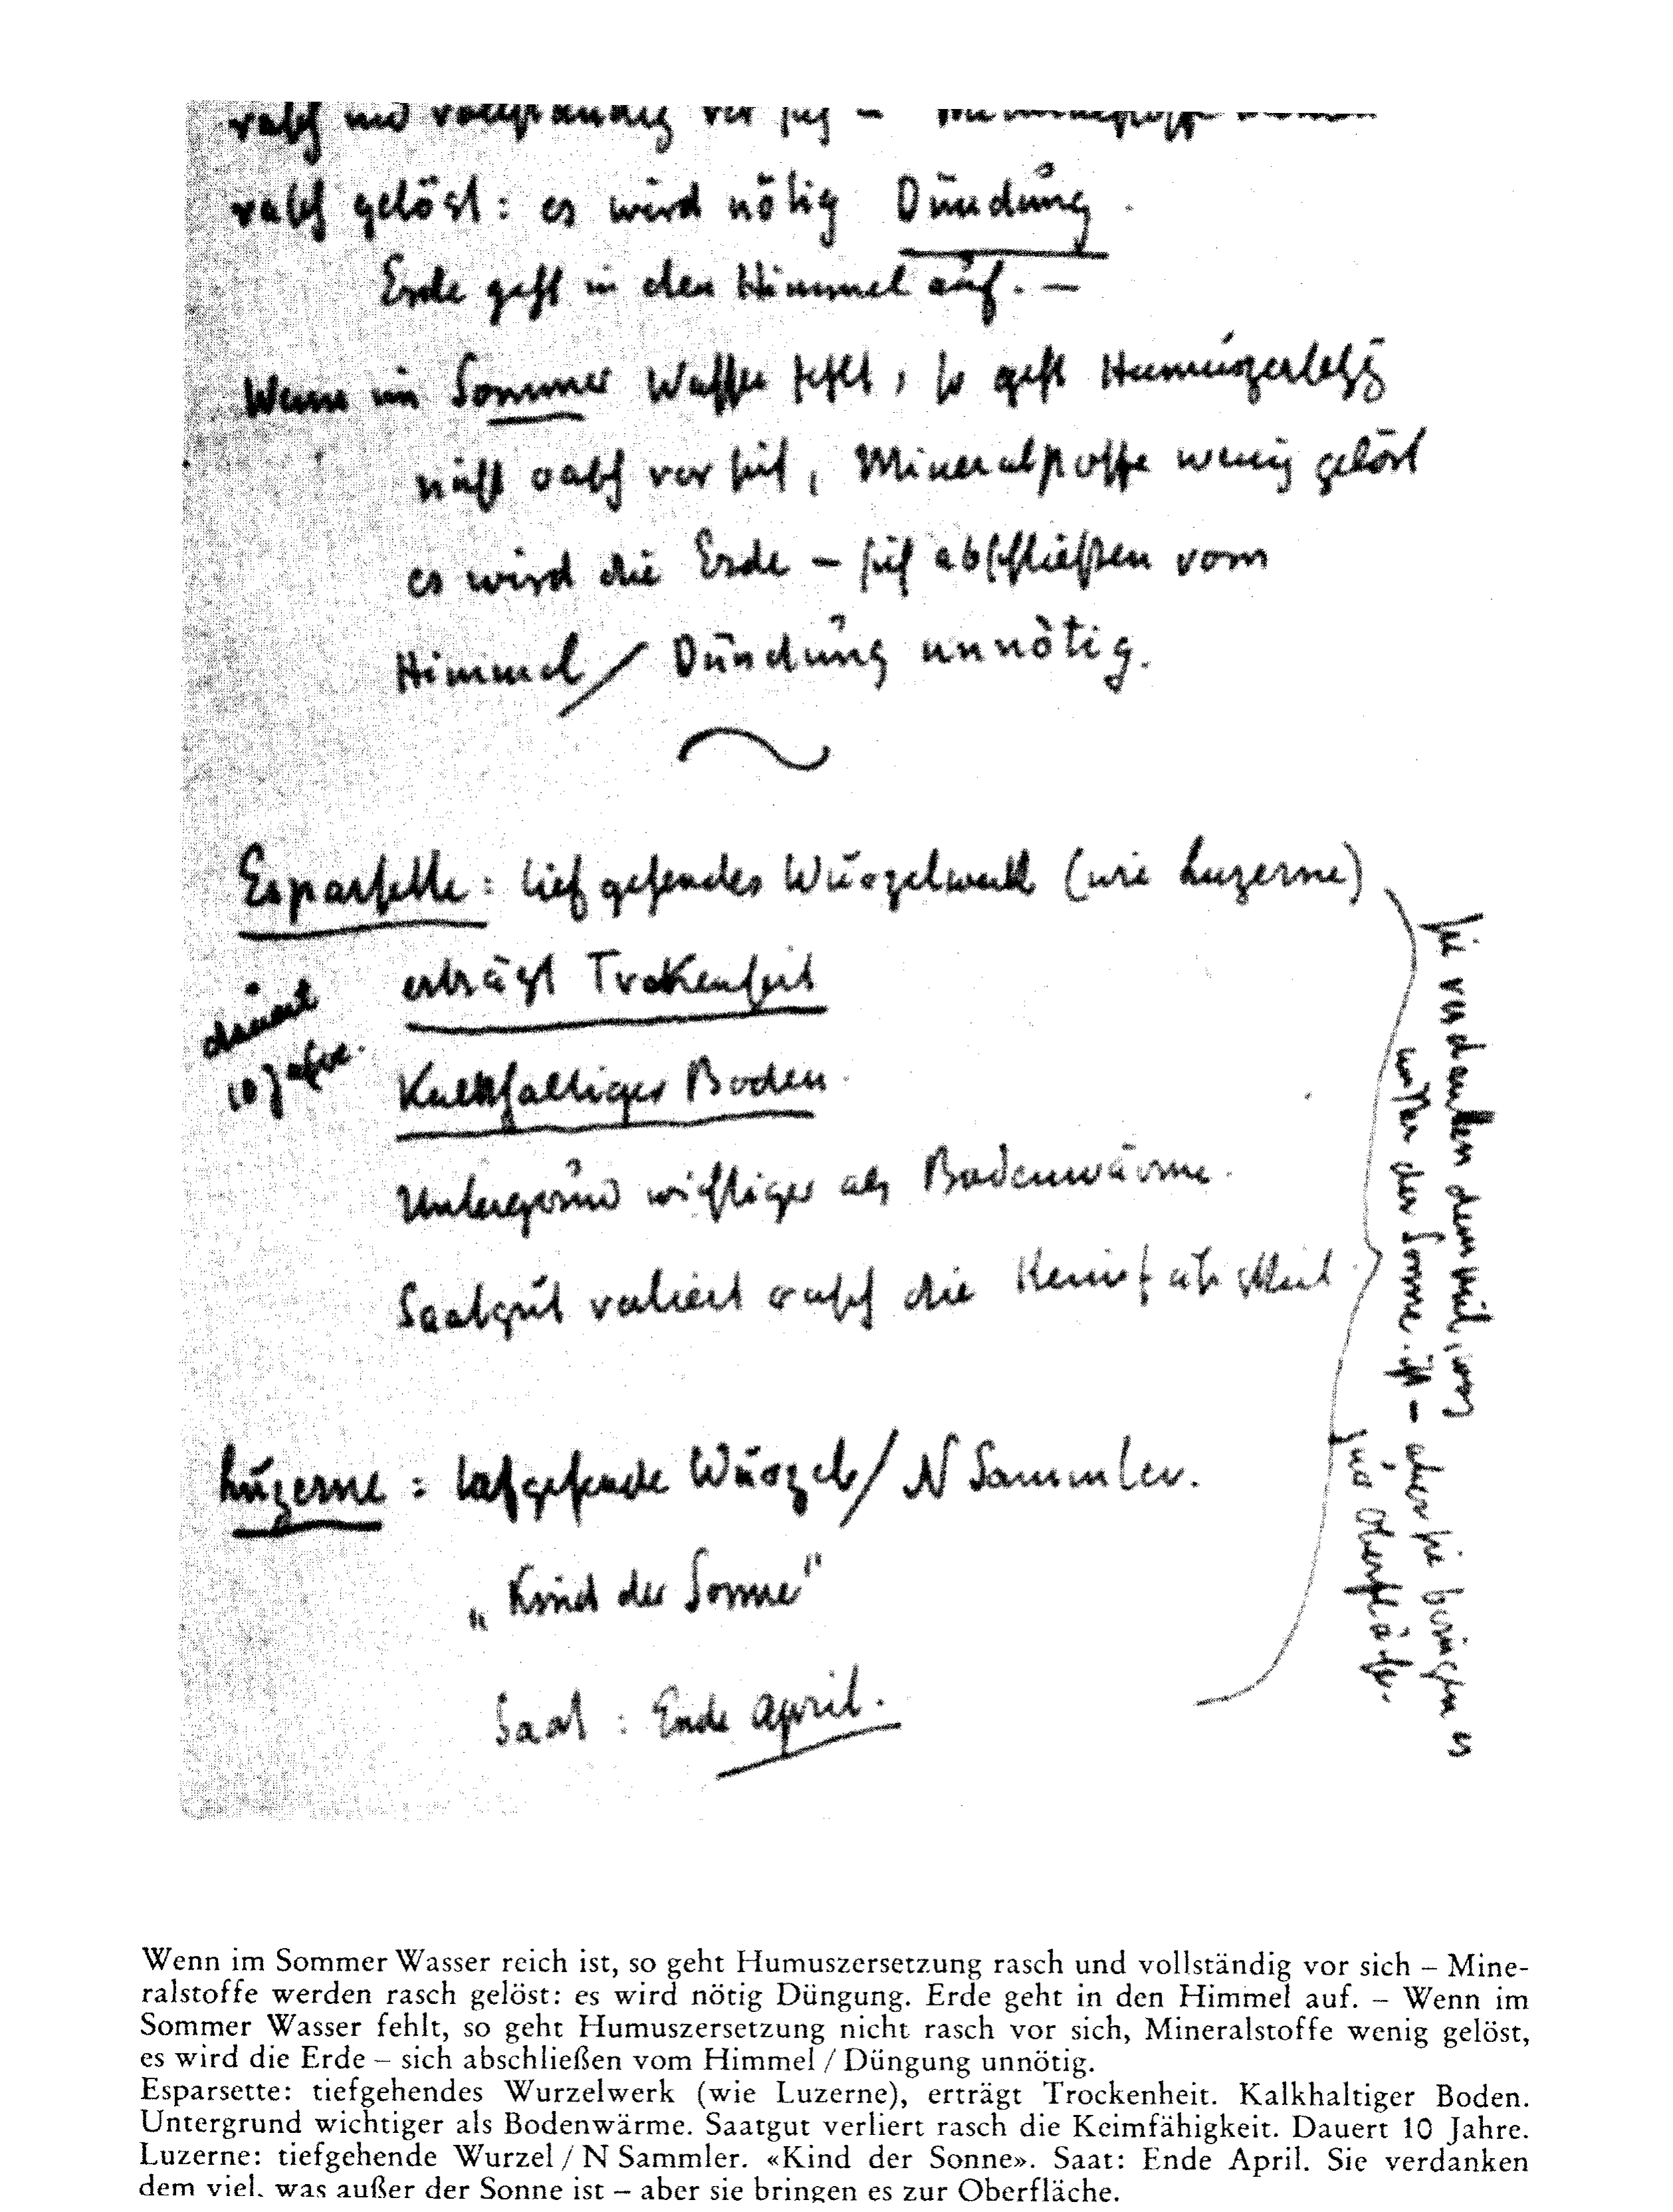 rasch und vollständig vor sich – Mineralstoffe werden
rasch gelöst: es wird nötig Düngung.
Erde geht in den Himmel auf. –
Wenn im Sommer Wasser fehlt, so geht Humuszersetzg
nicht rasch vor sich, Mineralstoffe wenig gelöst
es wird die Erde – sich abschließen vom
Himmel / Düngung unnötig.
Esparsette: tiefgehendes Wurzelwerk (wie Luzerne)
erträgt Trokenheit
dauert
10 Jahre.
Kalkhaltiger Boden.
Untergrund wichtiger als Bodenwärme.
Saatgut verliert rasch die Keimfähigkeit.
Luzerne: tiefgehende Wurzel / N Sammler.
„Kind der Sonne"
Saat: Ende April.
sie verdanken dem viel, was
außer der Sonne ist – aber sie bringen es
zur Oberfläche.
Wenn im Sommer Wasser reich ist, so geht Humuszersetzung rasch und vollständig vor sich – Mine-
ralstoffe werden rasch gelöst: es wird nötig Düngung. Erde geht in den Himmel auf. – Wenn im
Sommer Wasser fehlt, so geht Humuszersetzung nicht rasch vor sich, Mineralstoffe wenig gelöst,
es wird die Erde – sich abschließen vom Himmel / Düngung unnötig.
Esparsette: tiefgehendes Wurzelwerk (wie Luzerne), erträgt Trockenheit. Kalkhaltiger Boden.
Untergrund wichtiger als Bodenwärme. Saatgut verliert rasch die Keimfähigkeit. Dauert 10 Jahre.
Luzerne: tiefgehende Wurzel / N Sammler. «Kind der Sonne». Saat: Ende April. Sie verdanken
dem viel, was außer der Sonne ist – aber sie bringen es zur Oberfläche.